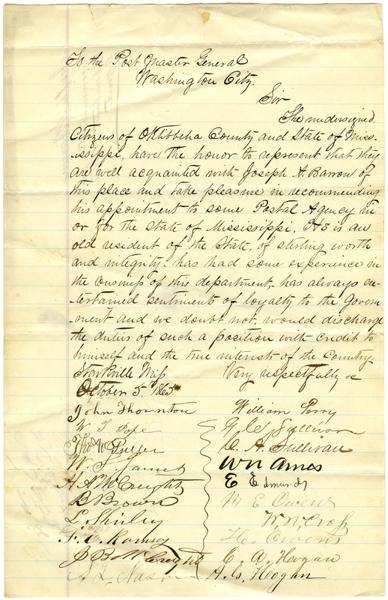 To the Post Master General
Washington City.
Sir
The undersigned
Citizens of Oktibbeha County and State of Miss-
issippi, have the honor to represent that they
are well acquainted with Joseph A. Barron of
this place and take pleasure in recommending
his appointment to some Postal Agency in
or for the State of Mississippi. He is an
old resident of the State, of sterling worth
and integrity has had some experience in
the of this department, has always en-
tertained sentiments of loyalty to the Govern-
ment and we doubt not, would discharge
the duties of such a position with credit to
himself and the true interests of the Country.
Starkville Miss Very respectfully &c
October 5th 1865
John Thornton
W. T. Pope
W. James
B Brown
L. Shirley
William Perry
G. C. Sullivan
C. A. Sullivan
W N Ames
E Edmunds
M E Owens
W. N. Cross
H. Owens
C. A. Hogan
A. G. Hogan